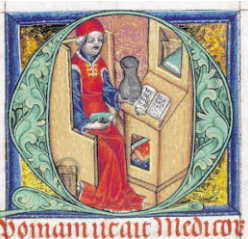 Quoniam ut ait Medicoꝝ